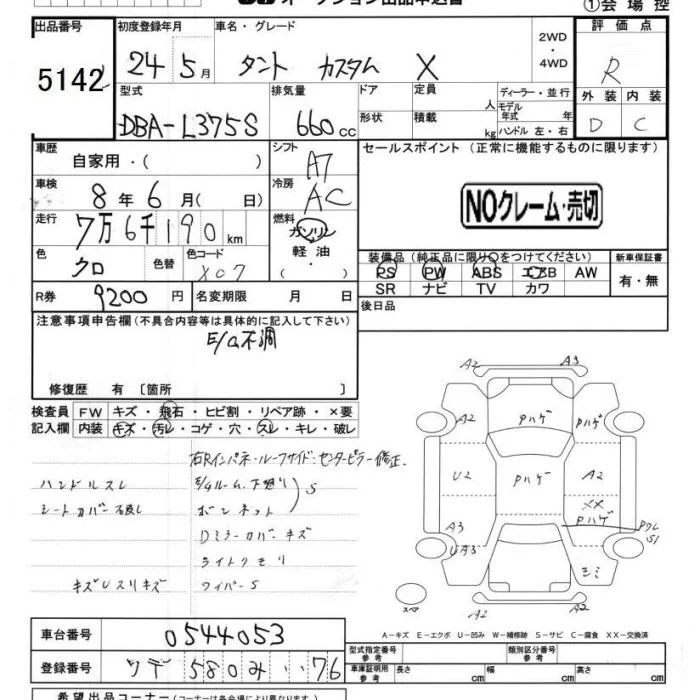 オークション出品申込書
①会場控
出品番号 5142
初度登録年月 24年 5月
車名・グレード タント カスタム X
2WD・4WD
評価点 R
型式 DBA-L375S
排気量 660cc
ドア
形状
定員 人
積載 kg
ディーラー・並行
モデル年式 年
ハンドル 左・右
外装 内装
D C
車歴 自家用・( )
シフト A7
セールスポイント (正常に機能するものに限ります)
車検 8年 6月 ( 日)
冷房 AC
NOクレーム・売切
走行 7万6千190km
燃料 ガソリン 軽油
色 クロ
色替
色コード X07
装備品 (純正品に限り○をつけてください)
新車保証書
PS PW ABS エアB AW
SR ナビ TV カワ
有・無
R券 9200円
名変期限 月 日
後日品
注意事項申告欄 (不具合内容等は具体的に記入して下さい)
E/G不調
修復歴 有 [箇所 ]
検査員記入欄
FW キズ・飛石・ヒビ割・リペア跡・×要
内装 キズ・汚レ・コゲ・穴・スレ・キレ・破レ
右Rインパネ・ルーフサイド・センターピラー修正
ハンドルスレ
E/Gルーム、下廻り S
ボンネット
Dミラーカバーキズ
ライトクモリ
ワイパーS
A2 A3
A2 Pハゲ Pハゲ
U2 Pハゲ A2
XX
Pハゲ
A3
UA3
S1
A2 A2
スペア
A-キズ E-エクボ U-凹み W-補修跡 S-サビ C-腐食 XX-交換済
車台番号 0544053
型式指定番号 参考
類別区分番号 参考
登録番号 580 み ・・76
車庫証明用 参考 長さ cm 幅 cm 高さ cm
希望出品コーナー (コーナーは各会場により